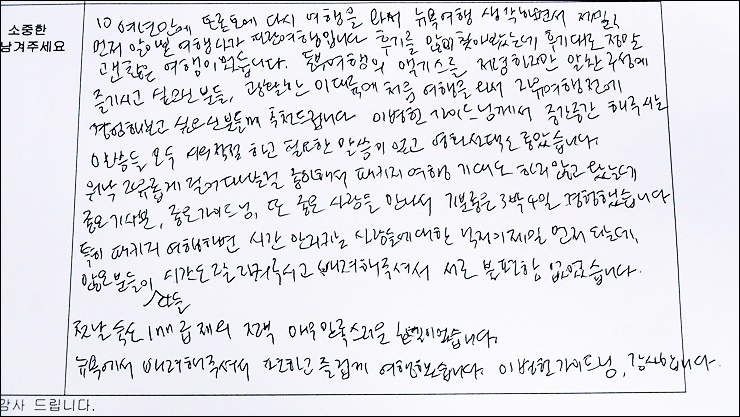 소중한
남겨주세요
10여년만에 토론토에 다시 여행을 와서 뉴욕여행 생각하면서 제일
먼저 알아본 여행사가 여행입니다. 후기를 찾아보았는데 후기대로 정말
괜찮은 여행이었습니다. 동부여행의 엑기스를 알찬 구성에
즐기시고 싶으신 분들, 광활한 이 대륙에 처음 여행을 와서 자유여행전에
경험해보고 싶으신분들께 추천드립니다. 이병헌 가이드님께서 중간중간 해주시는
말씀들 모두 하나 필요한 말씀이었고 영화선택도 좋았습니다.
워낙 자유롭게 걸어다니는걸 좋아해서 패키지 여행 기대도 하지 않고 왔는데
좋은 기사분, 좋은 가이드님, 또 좋은 사람들 만나서 기분좋은 3박4일 경험했습니다
특히 패키지 여행하면 시간 안지키는 사람들에 대한 걱정이 제일 먼저 되는데,
같은 분들이 시간도 잘 지켜주시고 배려해주셔서 서로 불편함 없었습니다.
다들
첫날 숙소 inn급 제외 전체 매우 만족스러운 호텔이었습니다.
뉴욕에서 배려해주셔서 편하고 즐겁게 여행했습니다. 이병헌가이드님, 감사합니다.
감사 드립니다.